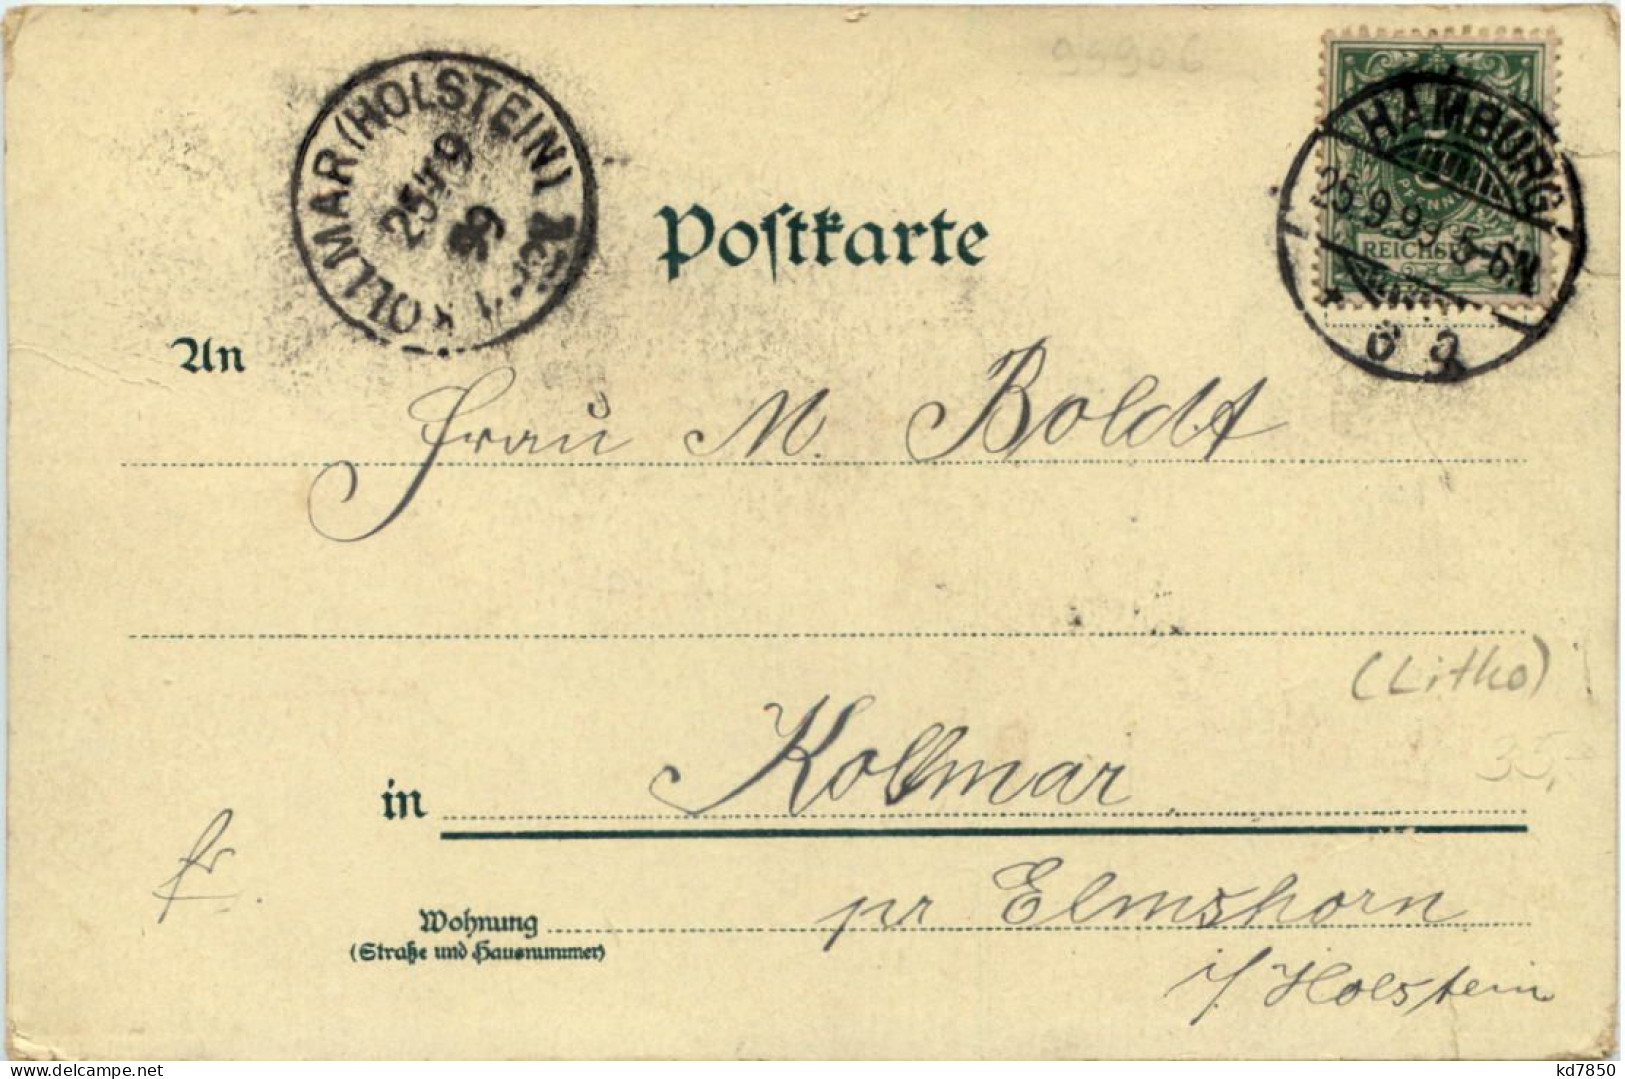 99906
KOLLMAR (HOLSTEIN)
25 9
99
HAMBURG
25.9.99 5-6N
PFENNIG
REICHSPOST
Postkarte
An
Frau M. Boldt
(Litho)
35,-
in Kollmar
fr.
Wohnung pr Elmshorn
(Straße und Hausnummer)
i/Holstein
delcampe.net
kd7850